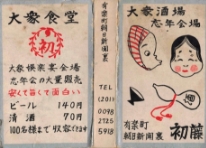 大衆食堂
初
大衆倶楽宴会場
忘年会の大奮販売
安くて旨くて面白い
ビール 140円
清酒 70円
100名様まで収容できます
有楽町朝日新聞裏
TEL
(201)
0098
2725
5918
大衆酒場
忘年会場
有楽町
朝日新聞裏
初藤